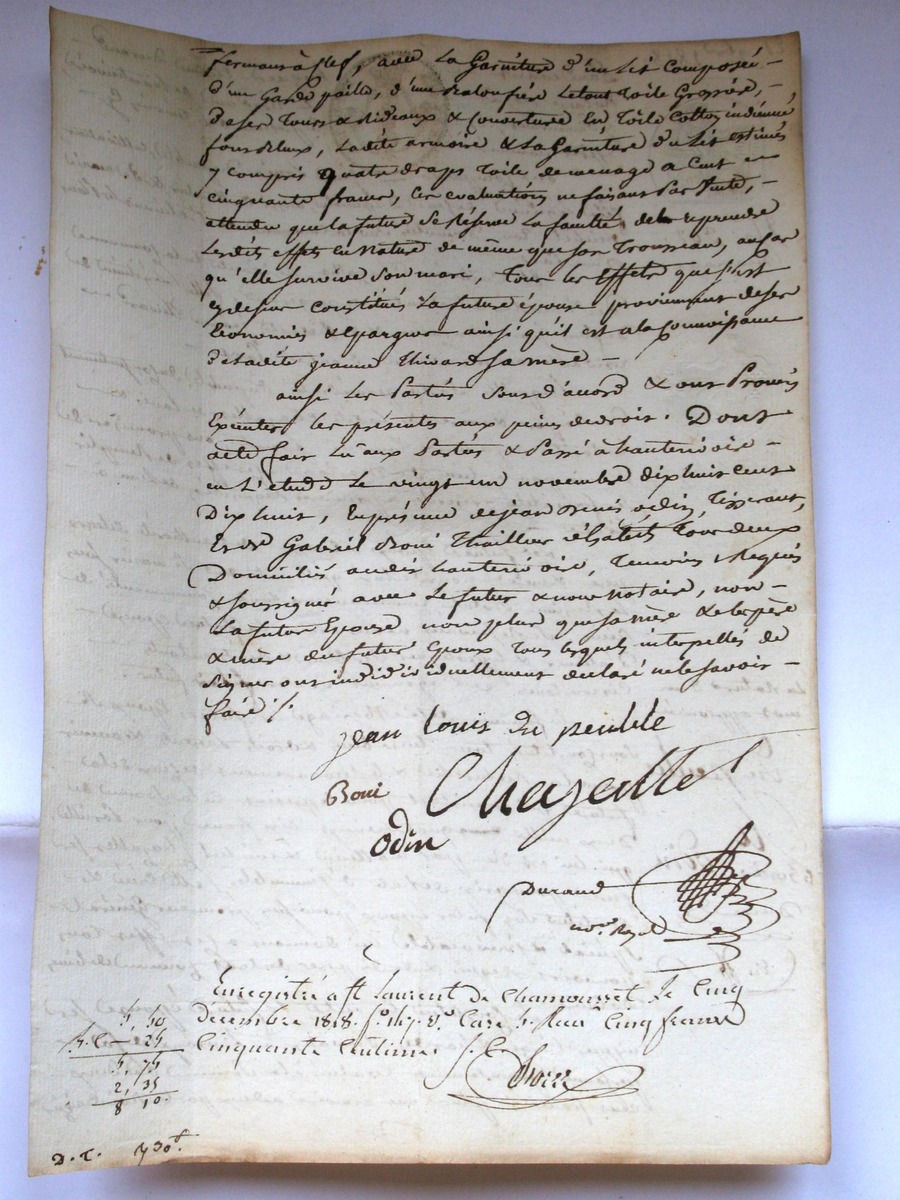 fermant à clef, avec la Garniture d'un Lit Composée -
d'un Garde paille, d'une Baloufière le tout Toile Grossière, -
de ses Tours & Rideaux & Couverture En Toile Cotton indienne
four bleux, Ladite armoire & La Garniture du Lit estimés
y compris quatre draps toile de menage a Cent -
cinquante francs, Ces evaluations ne faisant pas Vente, -
attendu que la future Se Réserve La faculté de reprendre
Lesdits effets En Nature de même que son Trousseau, au cas
qu'elle survive Son mari, Tous les Effets que s'est
cydessus Constitués La future épouse proviennent de ses
Economies & epargnes ainsi qu'il est a la Connoissance
de Ladite jeanne Thivard sa mère -
ainsi les Parties Sont d'accord & ont Promis
Exécuter les présentes aux peines de droit. Dont
acte fait Lu aux Parties & Passé à hauterivoire -
en L'etude Le vingt un novembre dix huit cent
Dix huit, En présence de jean odin, Tisserant,
Et Gabriel Boni Thailleur d'habits Tous deux
Domiciliés audit hauterivoire, Temoins Requis
& soussignés avec Le futur & nous Notaire, non -
La future Epouse non plus que sa mère & le père
& mère du futur Epoux Tous lesquels interpellés de
Signer ont individuellement declaré ne le savoir -
faire ./.
jean louis
Boni
odin
Durand
not. Royal
Enregistré à St Laurent de Chamousset le Cinq
decembre 1818. fo. Case 5. Cinq francs
Cinquante Centimes
5, 50
- 25
5, 75
2, 35
8 10
D. T. 730f.